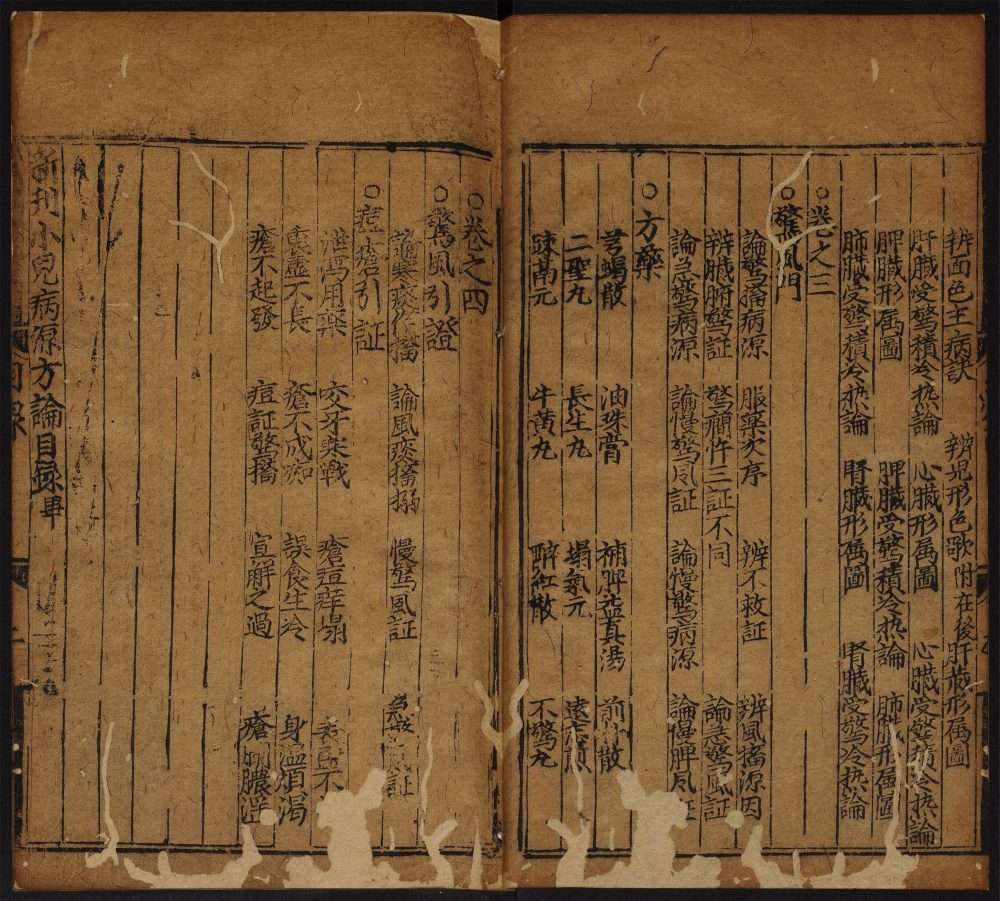 辨面色主病訣 辨児形色歌附在後 肝臓形属圖
肝臓受驚積冷热論 心臓形属圖 心臓受驚積冷热論
脾臓形属圖 脾臓受驚積冷热論 肺臓形属圖
肺臓受驚積冷热論 腎臓形属圖 腎臓受驚冷热論
○卷之三
○驚風門
論驚搐病源 服藥次序 辨不救証 辨風搐源因
辨臓腑驚証 驚癇忤三証不同 論急驚風証
論急驚病源 論慢驚風証 論慢驚病源 論慢脾風証
○方藥
芎蝎散 油珠膏 補脾益真湯 前散
二聖九 長生九 塌氣元 遠煎
辣髙元 牛黄九 醉紅散 不驚九
○卷之四
○驚風引證
論寒痰搐 論風痰搐搦 慢驚風証 証
○痘瘡引証
泄瀉用藥 咬牙寒戰 瘡痘痒塌 不
裏虚不長 瘡不成痂 誤食生冷 身温煩渴
瘡不起發 痘証驚搐 宣解之過 瘡膿
新刊小兒病源方論目録畢
目録